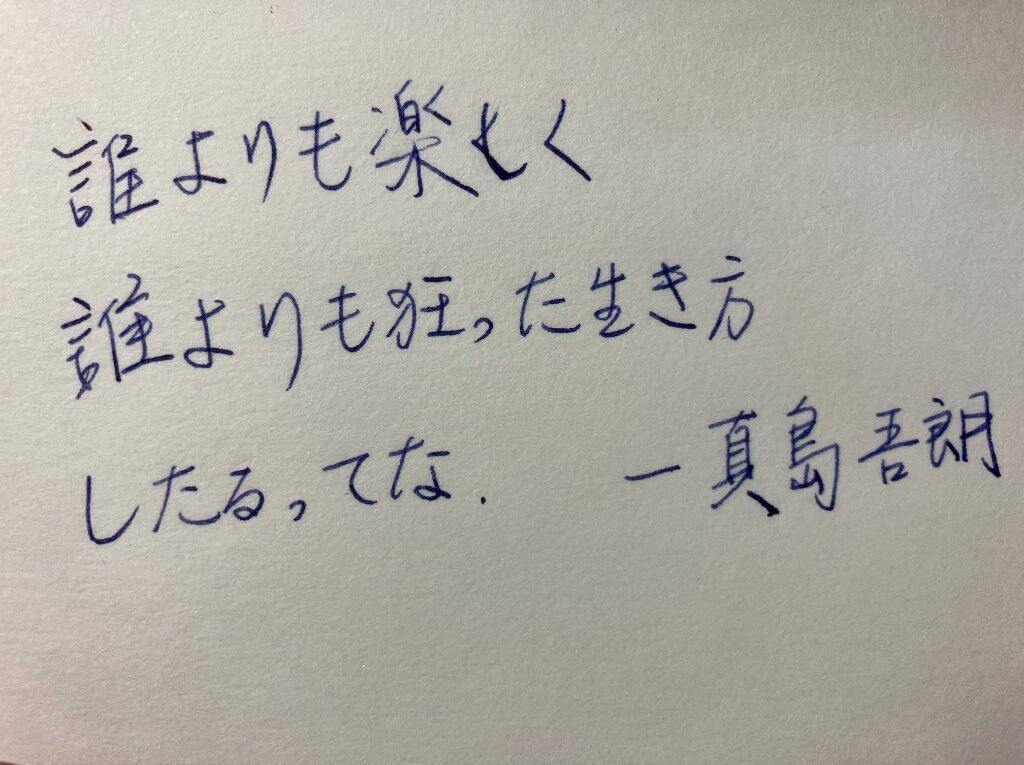 誰よりも楽しく
誰よりも狂った生き方
したるってな.　—真島吾朗